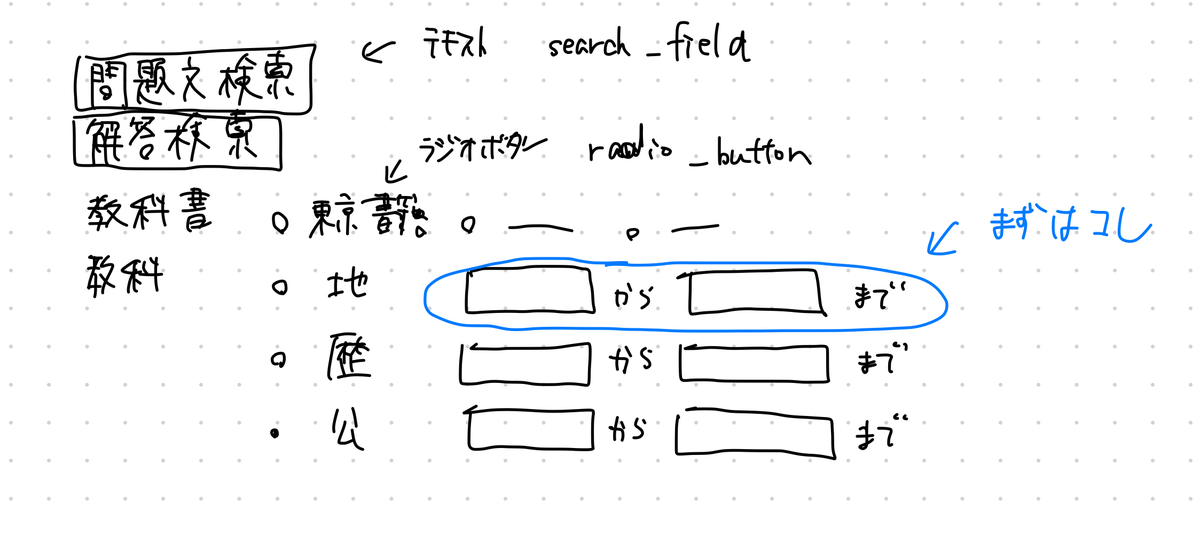 テキスト search_field
問題文検索
解答検索
ラジオボタン radio_button
教科書 東京書籍
まずはコレ
教科 地 から まで
歴 から まで
公 から まで